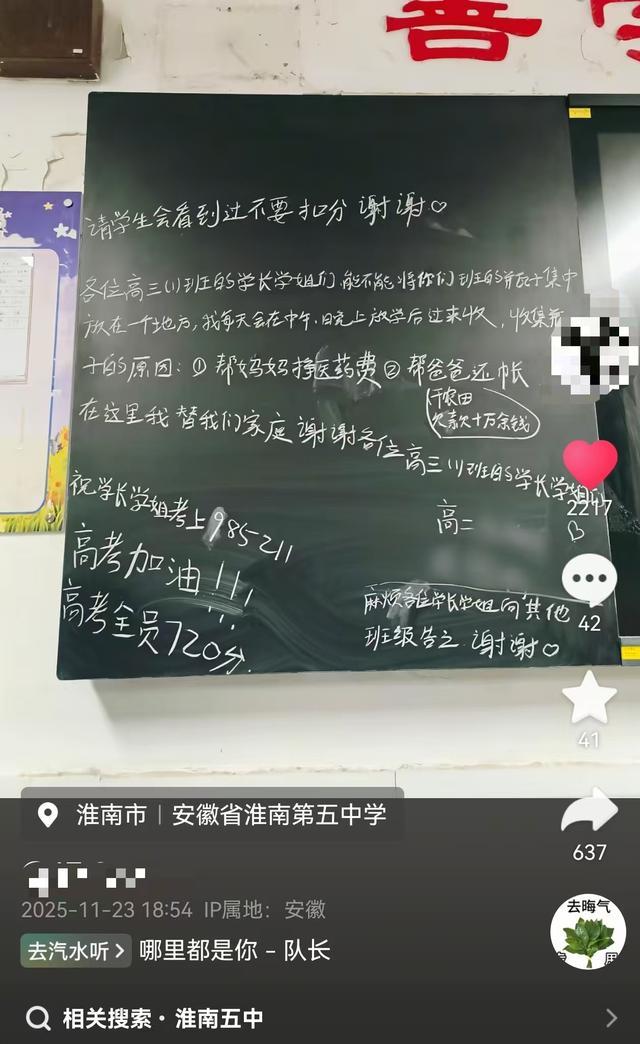 请学生会看到过不要扣分 谢谢♡
各位高三(1)班的学长学姐们,能不能将你们班的瓶子集中
放在一个地方,我每天会在中午、晚上放学后过来收,收集瓶
子的原因:① 帮妈妈挣医药费② 帮爸爸还帐
干农田
欠款十万余钱
在这里我替我们家庭谢谢各位高三(1)班的学长学姐们
高二
祝学长学姐考上985211
高考加油!!!
高考全员720分.
麻烦各位学长学姐向其他
班级告之.谢谢♡
2217
42
41
637
淮南市 | 安徽省淮南第五中学
2025-11-23 18:54 IP属地:安徽
去汽水听 > 哪里都是你 - 队长
去晦气
相关搜索· 淮南五中